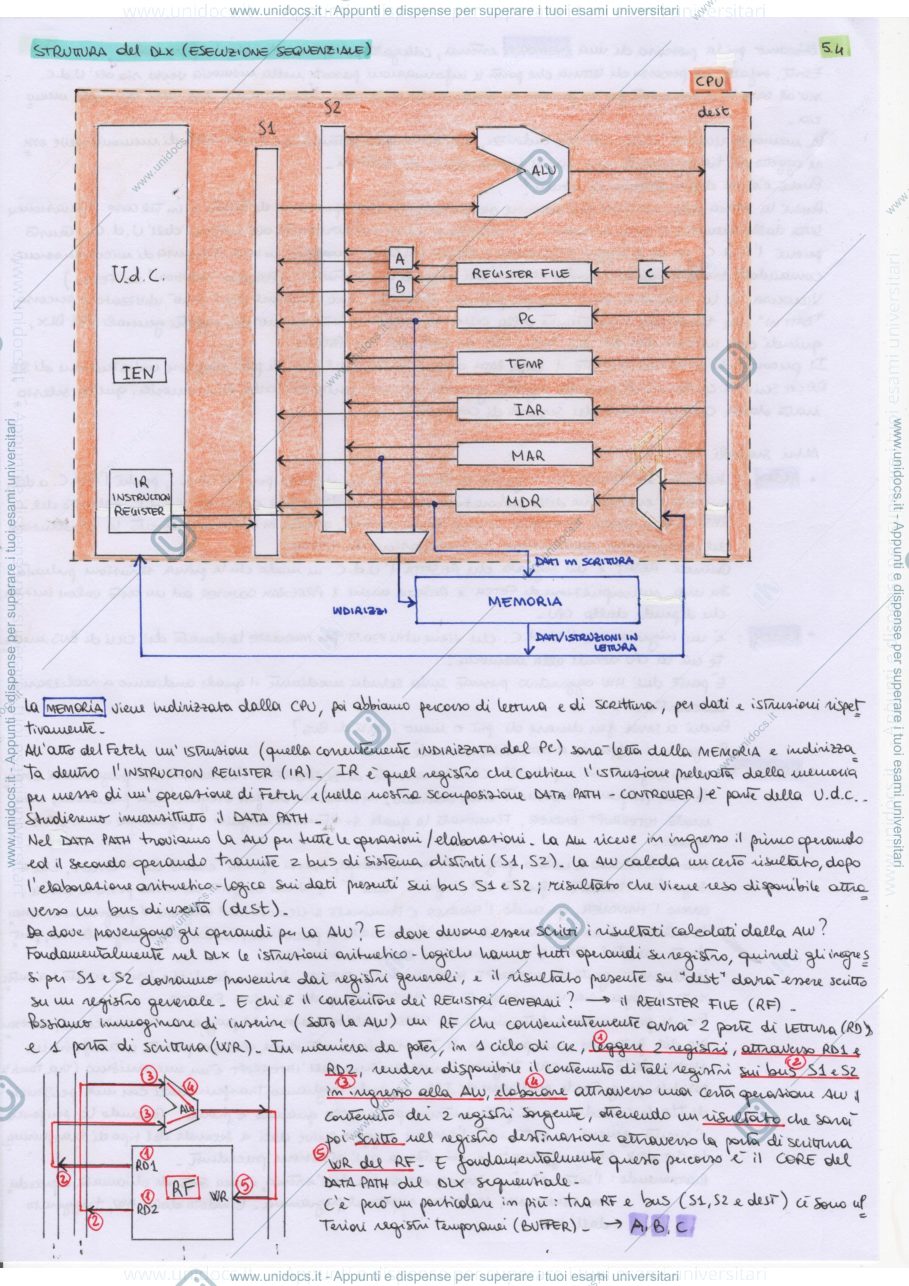 www.unidocs.it - Appunti e dispense per superare i tuoi esami universitari
STRUTTURA del DLX (ESECUZIONE SEQUENZIALE)
5.4
CPU
S1
S2
dest
ALU
U.d.C.
A
B
REGISTER FILE
C
PC
TEMP
IEN
IAR
MAR
IR
INSTRUCTION
REGISTER
MDR
DATI IN SCRITTURA
MEMORIA
INDIRIZZI
DATI/ISTRUZIONI IN
LETTURA
La MEMORIA viene indirizzata dalla CPU, poi abbiamo percorso di lettura e di scrittura, per dati e istruzioni rispet
tivamente.
All'atto del Fetch un'istruzione (quella correntemente INDIRIZZATA dal PC) sarà letta dalla MEMORIA e indirizza
ta dentro l'INSTRUCTION REGISTER (IR). IR è quel registro che contiene l'istruzione prelevata dalla memoria
per mezzo di un'operazione di Fetch e (nella nostra scomposizione DATA PATH - CONTROLLER) è parte della U.d.C..
Studieremo innanzitutto il DATA PATH.
Nel DATA PATH troviamo la ALU per tutte le operazioni/elaborazioni. La ALU riceve in ingresso il primo operando
ed il secondo operando tramite 2 bus di sistema distinti (S1, S2). La ALU calcola un certo risultato, dopo
l'elaborazione aritmetico-logica sui dati presenti sui bus S1 e S2; risultato che viene reso disponibile attra
verso un bus di uscita (dest).
Da dove provengono gli operandi per la ALU? E dove devono essere scritti i risultati calcolati dalla ALU?
Fondamentalmente nel DLX le istruzioni aritmetico-logiche hanno tutti operandi su registro, quindi gli ingres
si per S1 e S2 dovranno provenire dai registri generali, e il risultato presente su "dest" dovrà essere scritto
su un registro generale. E chi è il contenitore dei REGISTRI GENERALI? → il REGISTER FILE (RF).
Possiamo immaginare di inserire (sotto la ALU) un RF che convenientemente avrà 2 porte di LETTURA (RD)
e 1 porta di scrittura (WR). In maniera da poter, in 1 ciclo di CK, leggere 2 registri, attraverso RD1 e
RD2, rendere disponibile il contenuto di tali registri sui bus S1 e S2
in ingresso alla ALU, elaborare attraverso una certa operazione ALU il
contenuto dei 2 registri sorgente, ottenendo un risultato che sarà
poi scritto nel registro destinazione attraverso la porta di scrittura
WR del RF. E fondamentalmente questo percorso è il CORE del
DATA PATH del DLX sequenziale.
C'è però un particolare in più: tra RF e bus (S1, S2 e dest) ci sono ul
teriori registri temporanei (BUFFER). → A, B, C.
1
2
3
4
5
3
3
4
ALU
1
RD1
2
RF
WR
5
1
RD2
2
www.unidocs.it - Appunti e dispense per superare i tuoi esami universitari